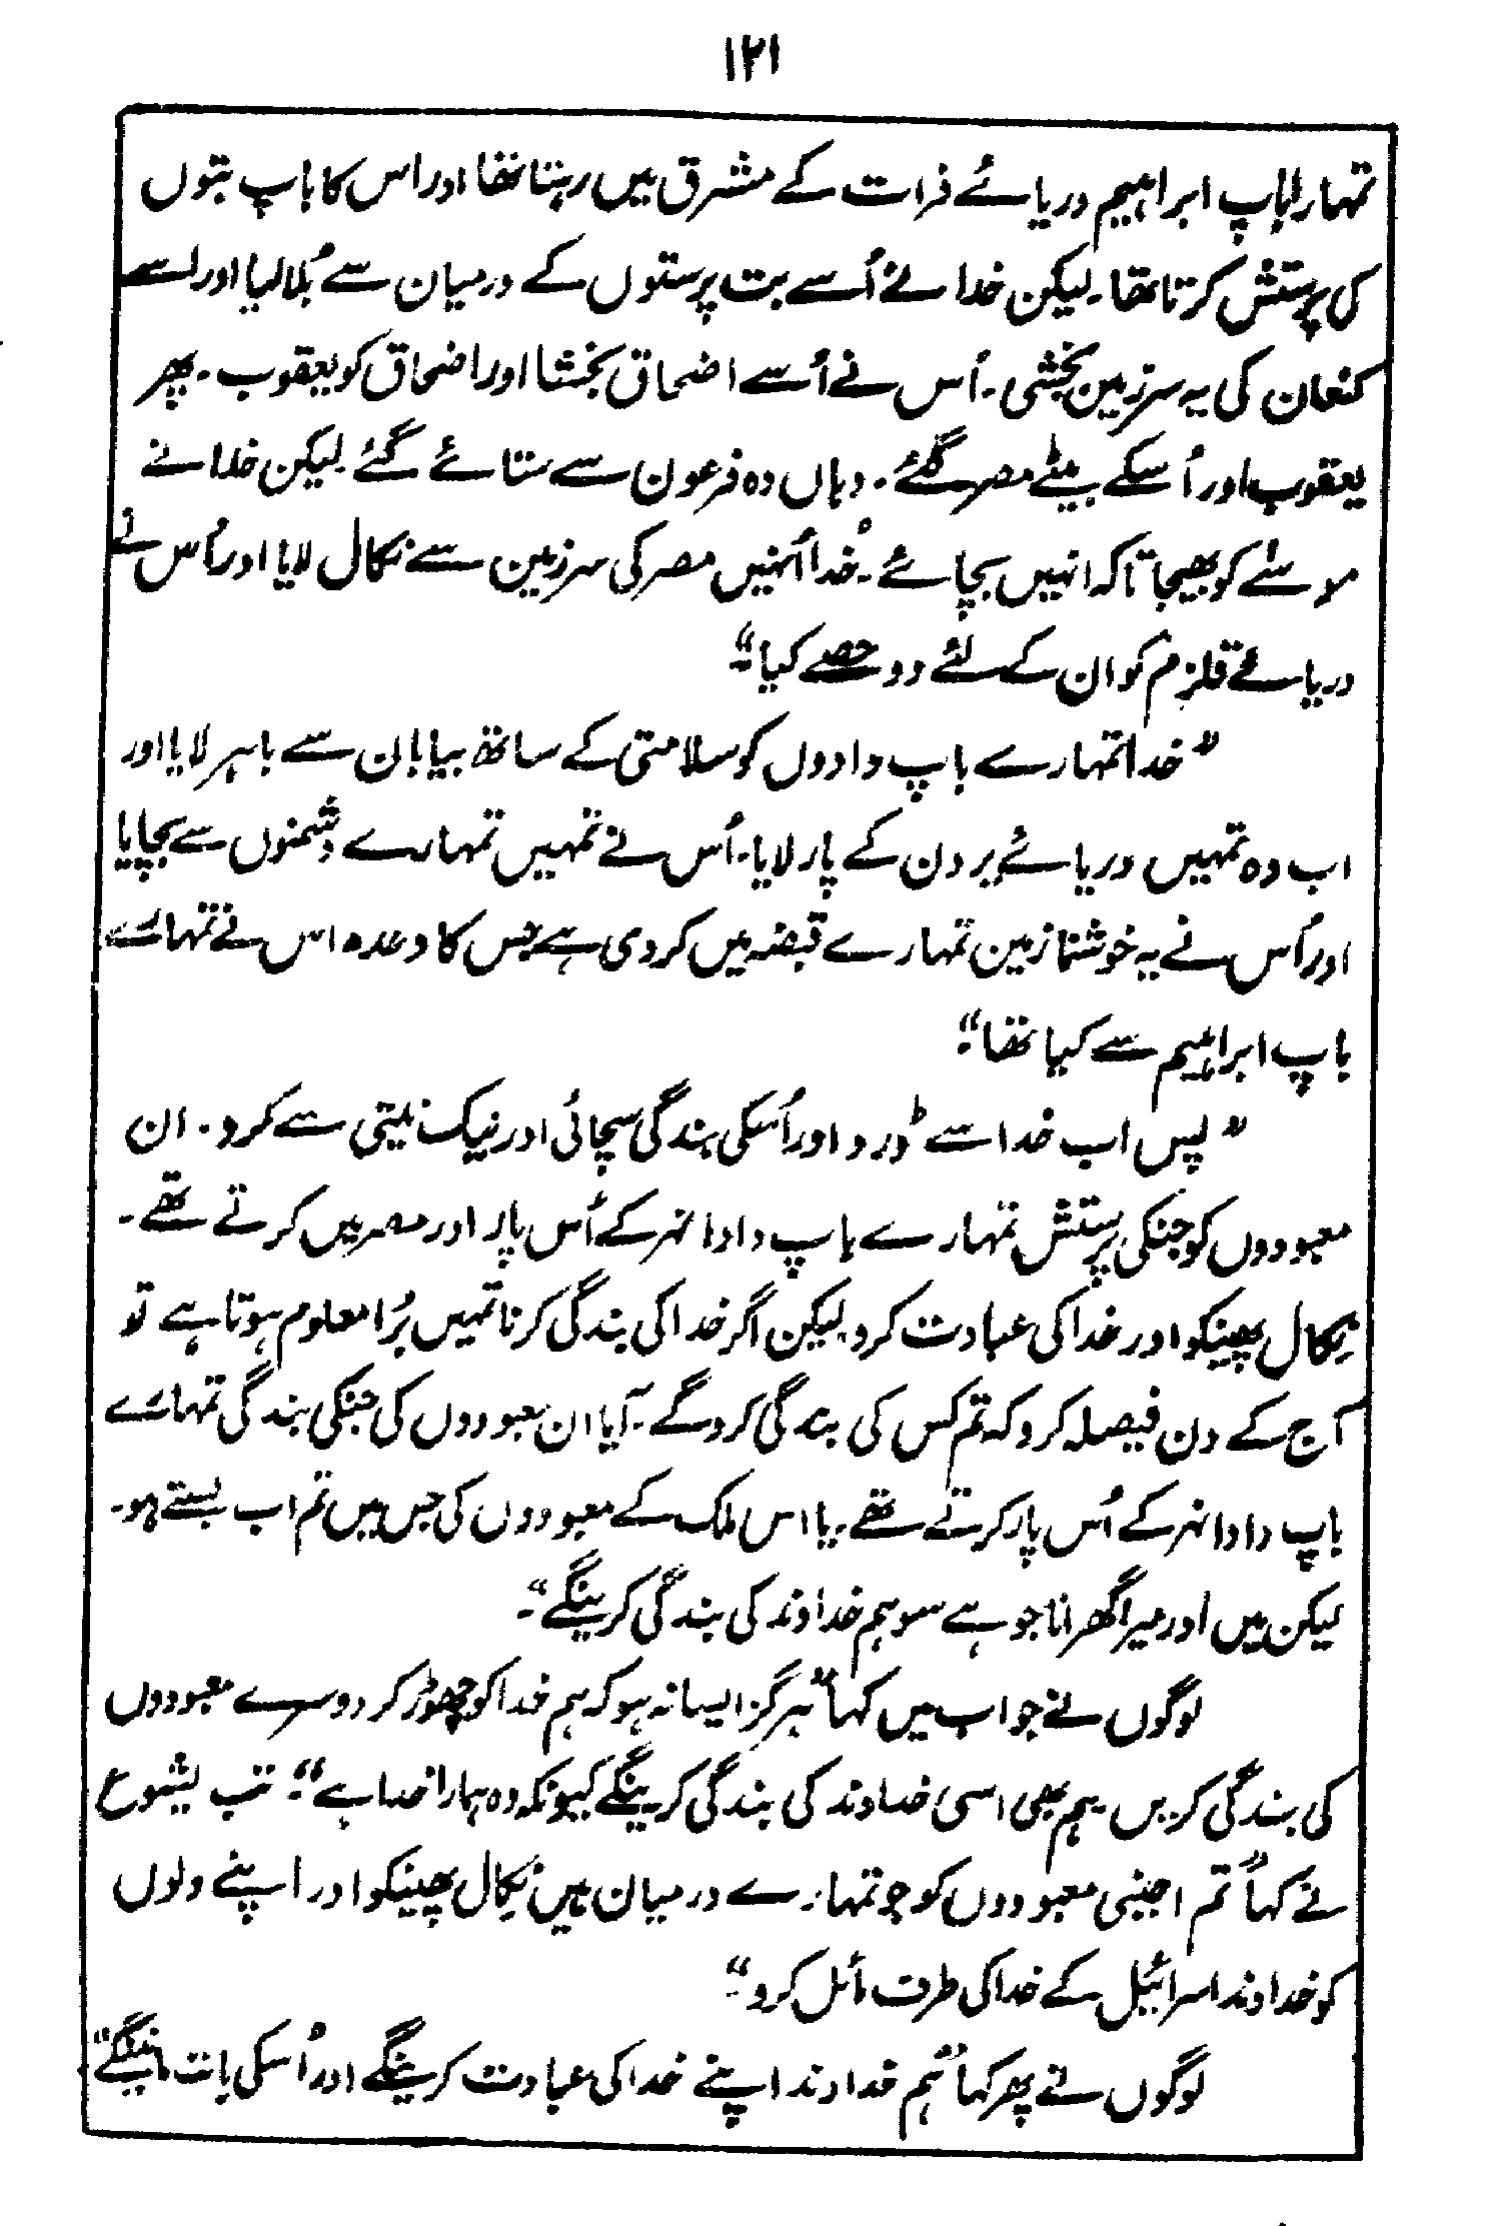 ۱۲۱
تمہارا باپ ابراہیم دریائے فرات کے مشرق میں رہتا تھا اور اس کا باپ بتوں
کی پرستش کرتا تھا۔ لیکن خدا نے اُسے بت پرستوں کے درمیان سے بُلا لیا اور اسے
کنعان کی یہ سرزمین بخشی۔ اُس نے اُسے اضحاق بخشا اور اضحاق کو یعقوب۔ پھر
یعقوب اور اُسکے بیٹے مصر گئے۔ وہاں وہ فرعون سے ستائے گئے لیکن خدا نے
موسٰے کو بھیجا تاکہ انہیں بچائے۔ خُدا اُنہیں مصر کی سرزمین سے نکال لایا اور اُس نے
دریائے قلزم کو ان کے لئے دو حصے کیا"۔
"خدا تمہارے باپ دادوں کو سلامتی کے ساتھ بیابان سے باہر لایا اور
اب وہ تمہیں دریائے یردن کے پار لایا۔ اُس نے تمہیں تمہارے دُشمنوں سے بچایا
اور اُس نے یہ خوشنما زمین تمہارے قبضہ میں کر دی ہے جس کا وعدہ اس نے تمہارے
باپ ابراہیم سے کیا تھا"۔
"پس اب خدا سے ڈرو اور اُسکی بندگی سچائی اور نیک نیتی سے کرو۔ ان
معبودوں کو جنکی پرستش تمہارے باپ دادا نہر کے اُس پار اور مصر میں کرتے تھے۔
نِکال پھینکو اور خدا کی عبادت کرو لیکن اگر خدا کی بندگی کرنا تمہیں بُرا معلوم ہوتا ہے تو
آج کے دن فیصلہ کرو کہ تم کس کی بندگی کرو گے۔ آیا ان معبودوں کی جنکی بندگی تمہارے
باپ دادا نہر کے اُس پار کرتے تھے۔ یا اس ملک کے معبودوں کی جس میں تم اب بستے ہو۔
لیکن میں اور میرا گھرانا جو ہے سو ہم خداوند کی بندگی کرینگے"۔
لوگوں نے جواب میں کہا "ہرگز ایسا نہ ہو کہ ہم خدا کو چھوڑ کر دوسرے معبودوں
کی بندگی کریں۔ ہم بھی اسی خداوند کی بندگی کرینگے کیونکہ وہ ہمارا خدا ہے"۔ تب یشوع
نے کہا "تم اجنبی معبودوں کو جو تمہارے درمیان ہیں نِکال پھینکو اور اپنے دلوں
کو خداوند اسرائیل کے خدا کی طرف مائل کرو"۔
لوگوں نے پھر کہا "ہم خداوند اپنے خدا کی عبادت کرینگے اور اُسکی بات مانینگے"۔